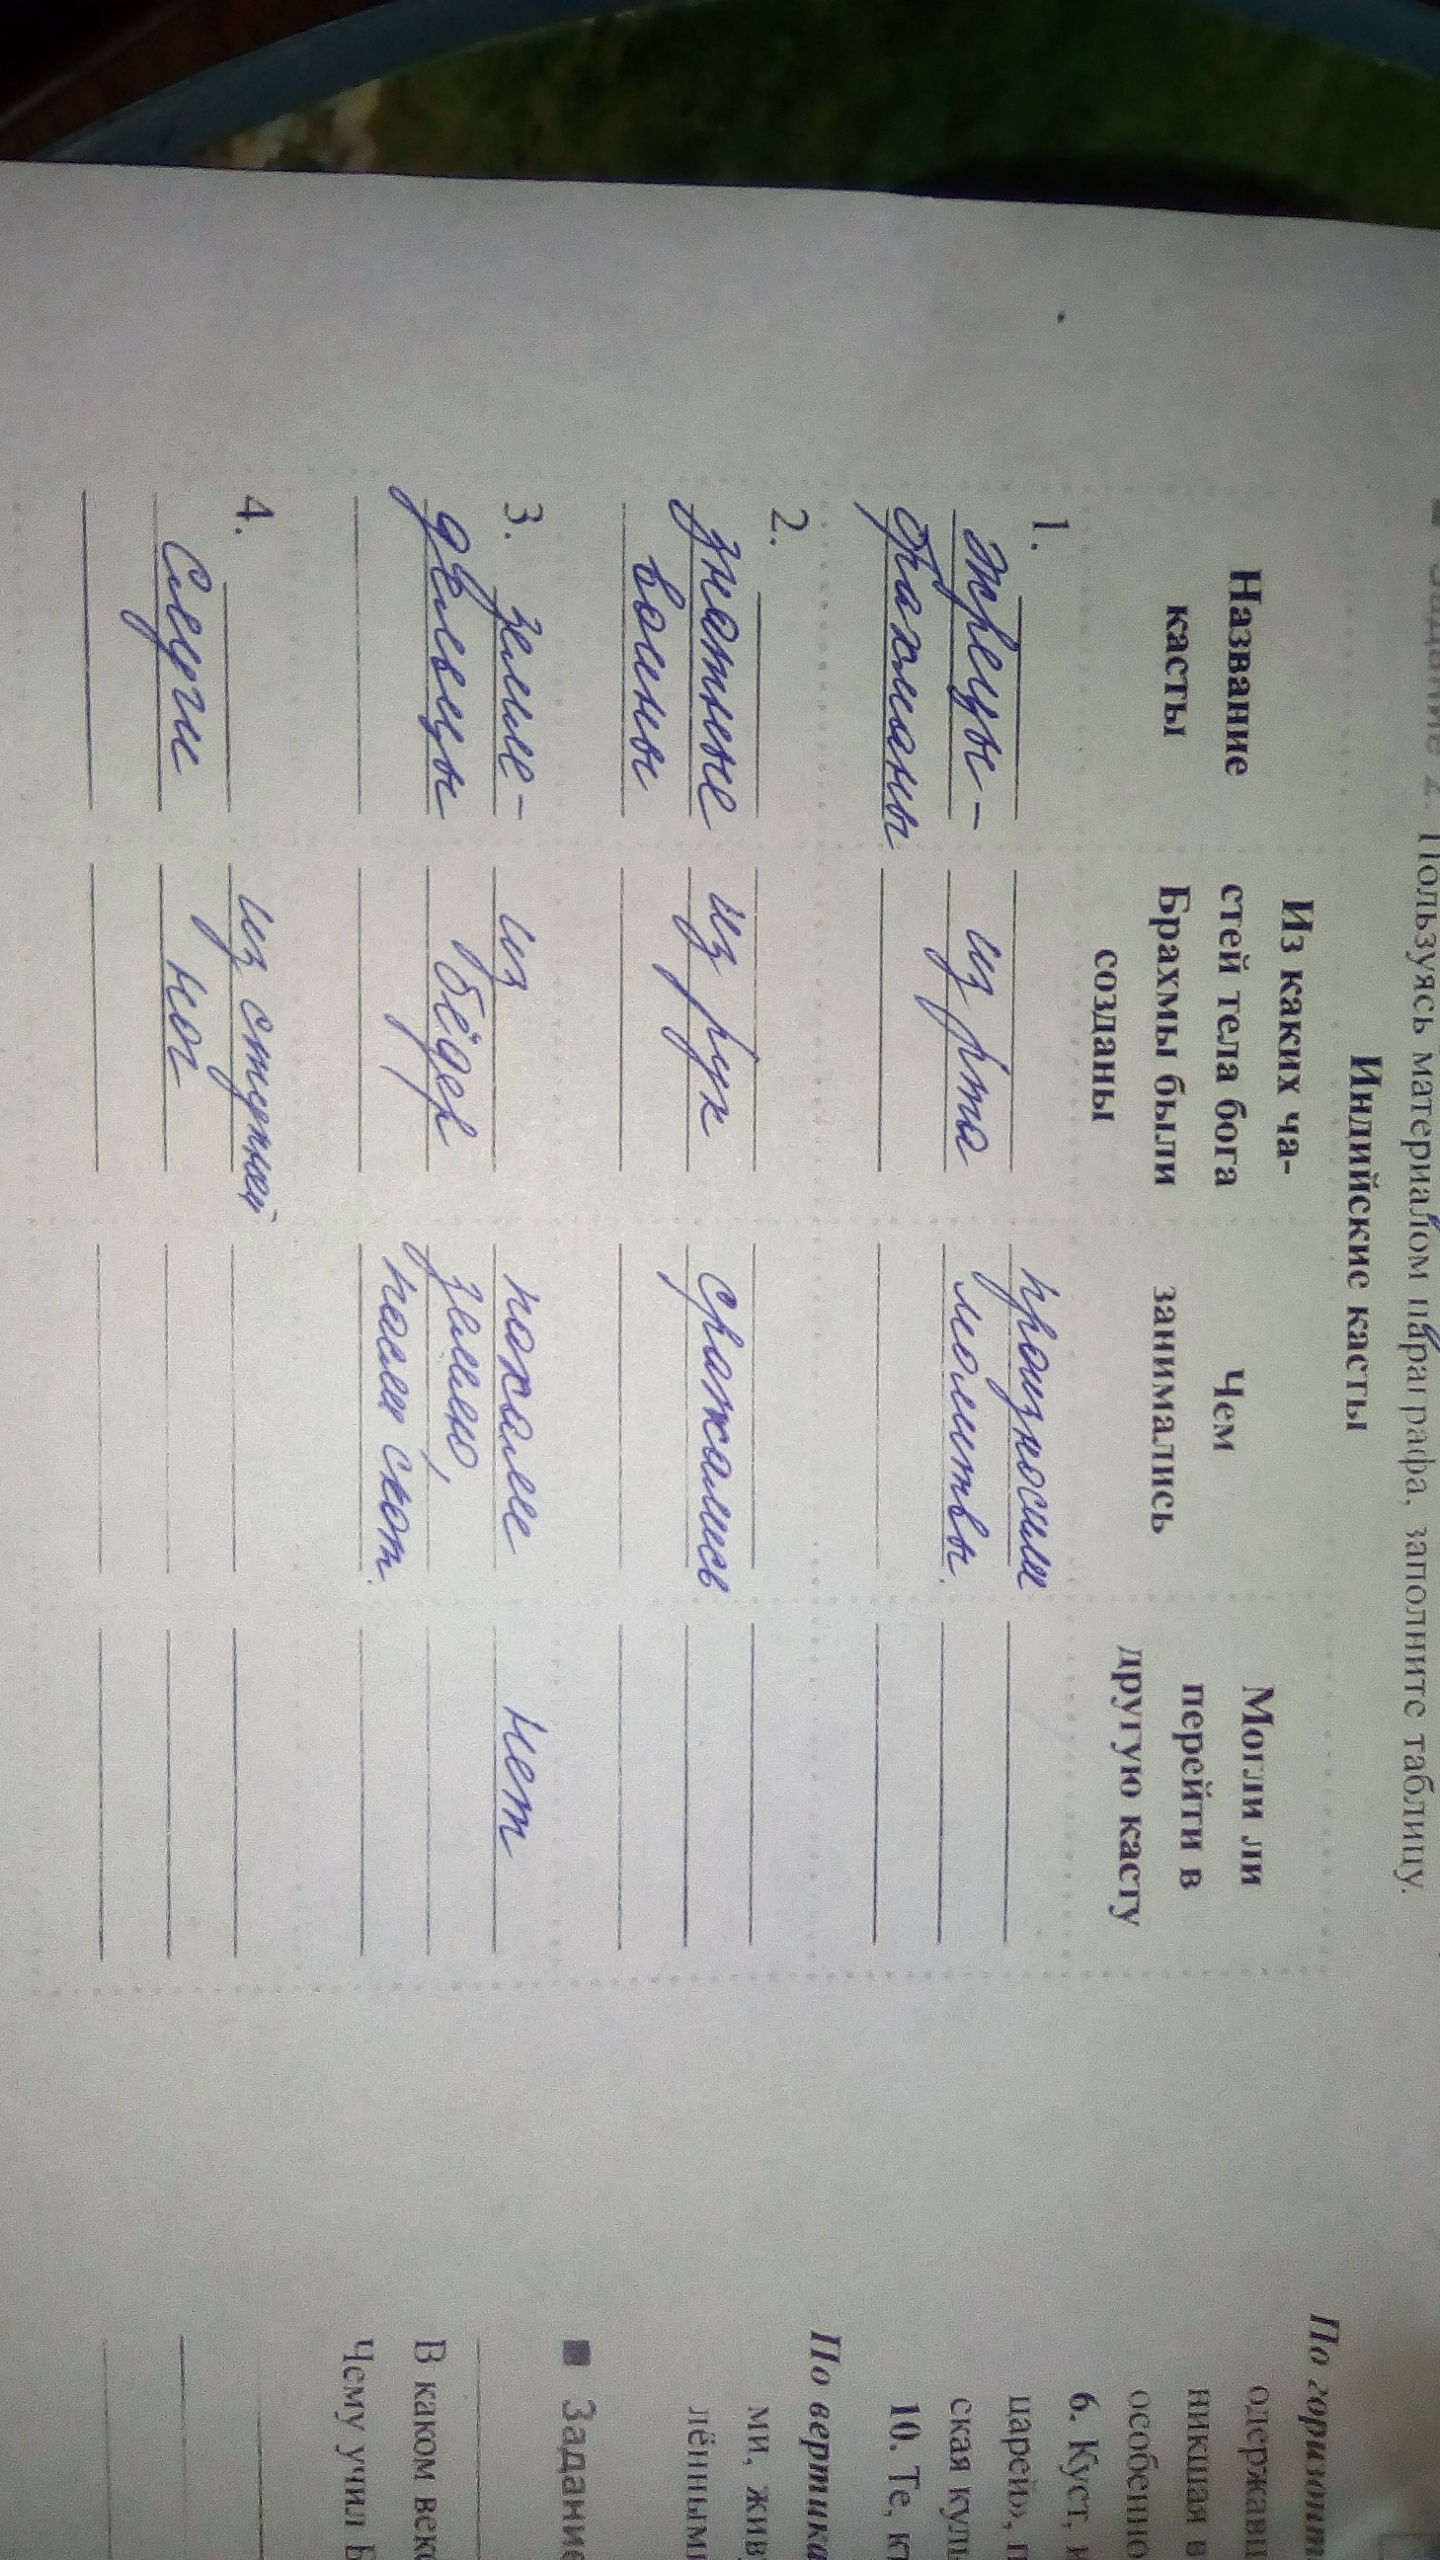 Задание 2. Пользуясь материалом параграфа, заполните таблицу.
Индийские касты
Название
касты
Из каких ча-
стей тела бога
Брахмы были
созданы
Чем
занимались
Могли ли
перейти в
другую касту
1.
жрецы -
брахманы
из рта
произносили
молитвы.
2.
знатные
воины
из рук
сражались
3. земле -
дельцы
из
бёдер
пахали
землю,
пасли скот.
нет
4.
Слуги
из ступней
ног
По горизонт
одержавш
никшая в
особенно
6. Куст, и
царей», п
ская куль
10. Те, кт
По вертика
ми, жив
лёнными
■ Задание
В каком веке
Чему учил Б